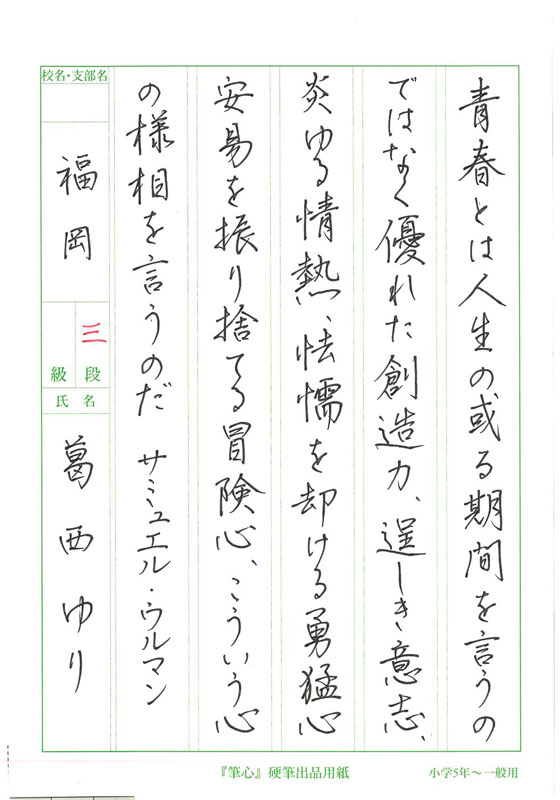 青春とは人生の或る期間を言うの
ではなく優れた創造力、逞しき意志、
炎ゆる情熱、怯懦を却ける勇猛心
安易を振り捨てる冒険心、こういう心
の様相を言うのだ サミュエル・ウルマン
校名・支部名
福岡
三
段
級
氏名
葛西ゆり
『筆心』硬筆出品用紙
小学5年〜一般用